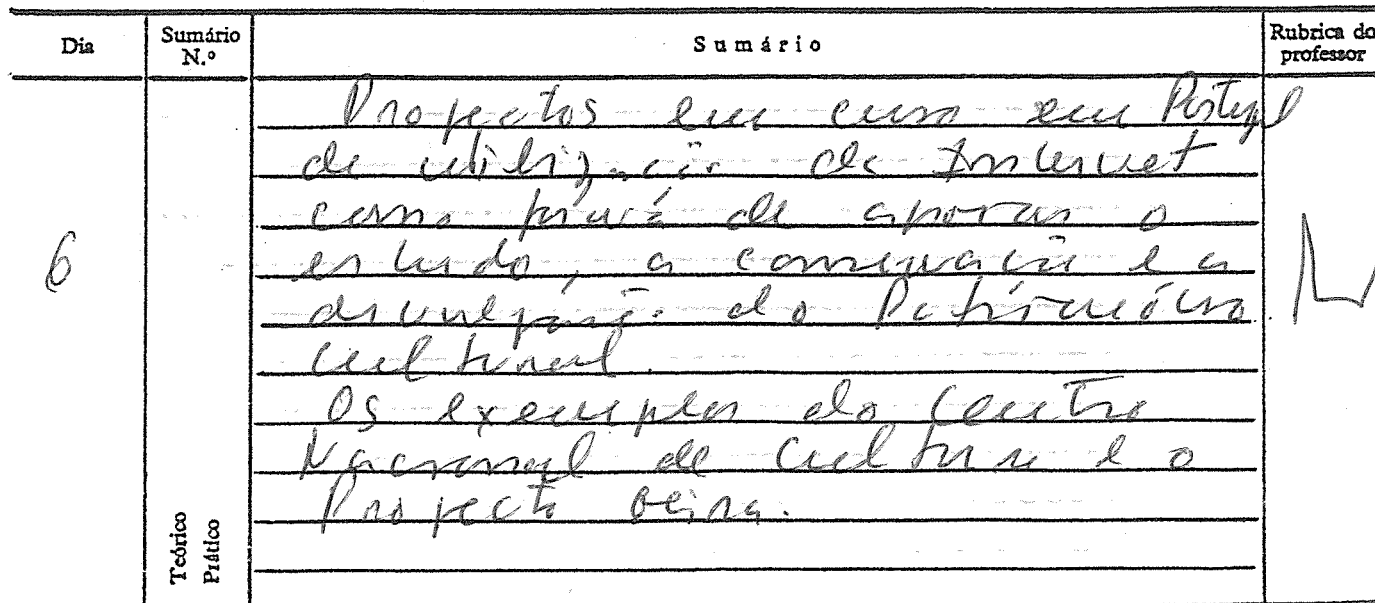 Dia Sumário N.º Sumário Rubrica do professor
Projectos em curso em Portugal
de utilização da Internet
como de apoiar o
estudo, a conservação e a
divulgação do Património
Cultural.
6
Os exemplos do Centro
Nacional de Cultura e o
Projecto Geira.
Teórico
Prático